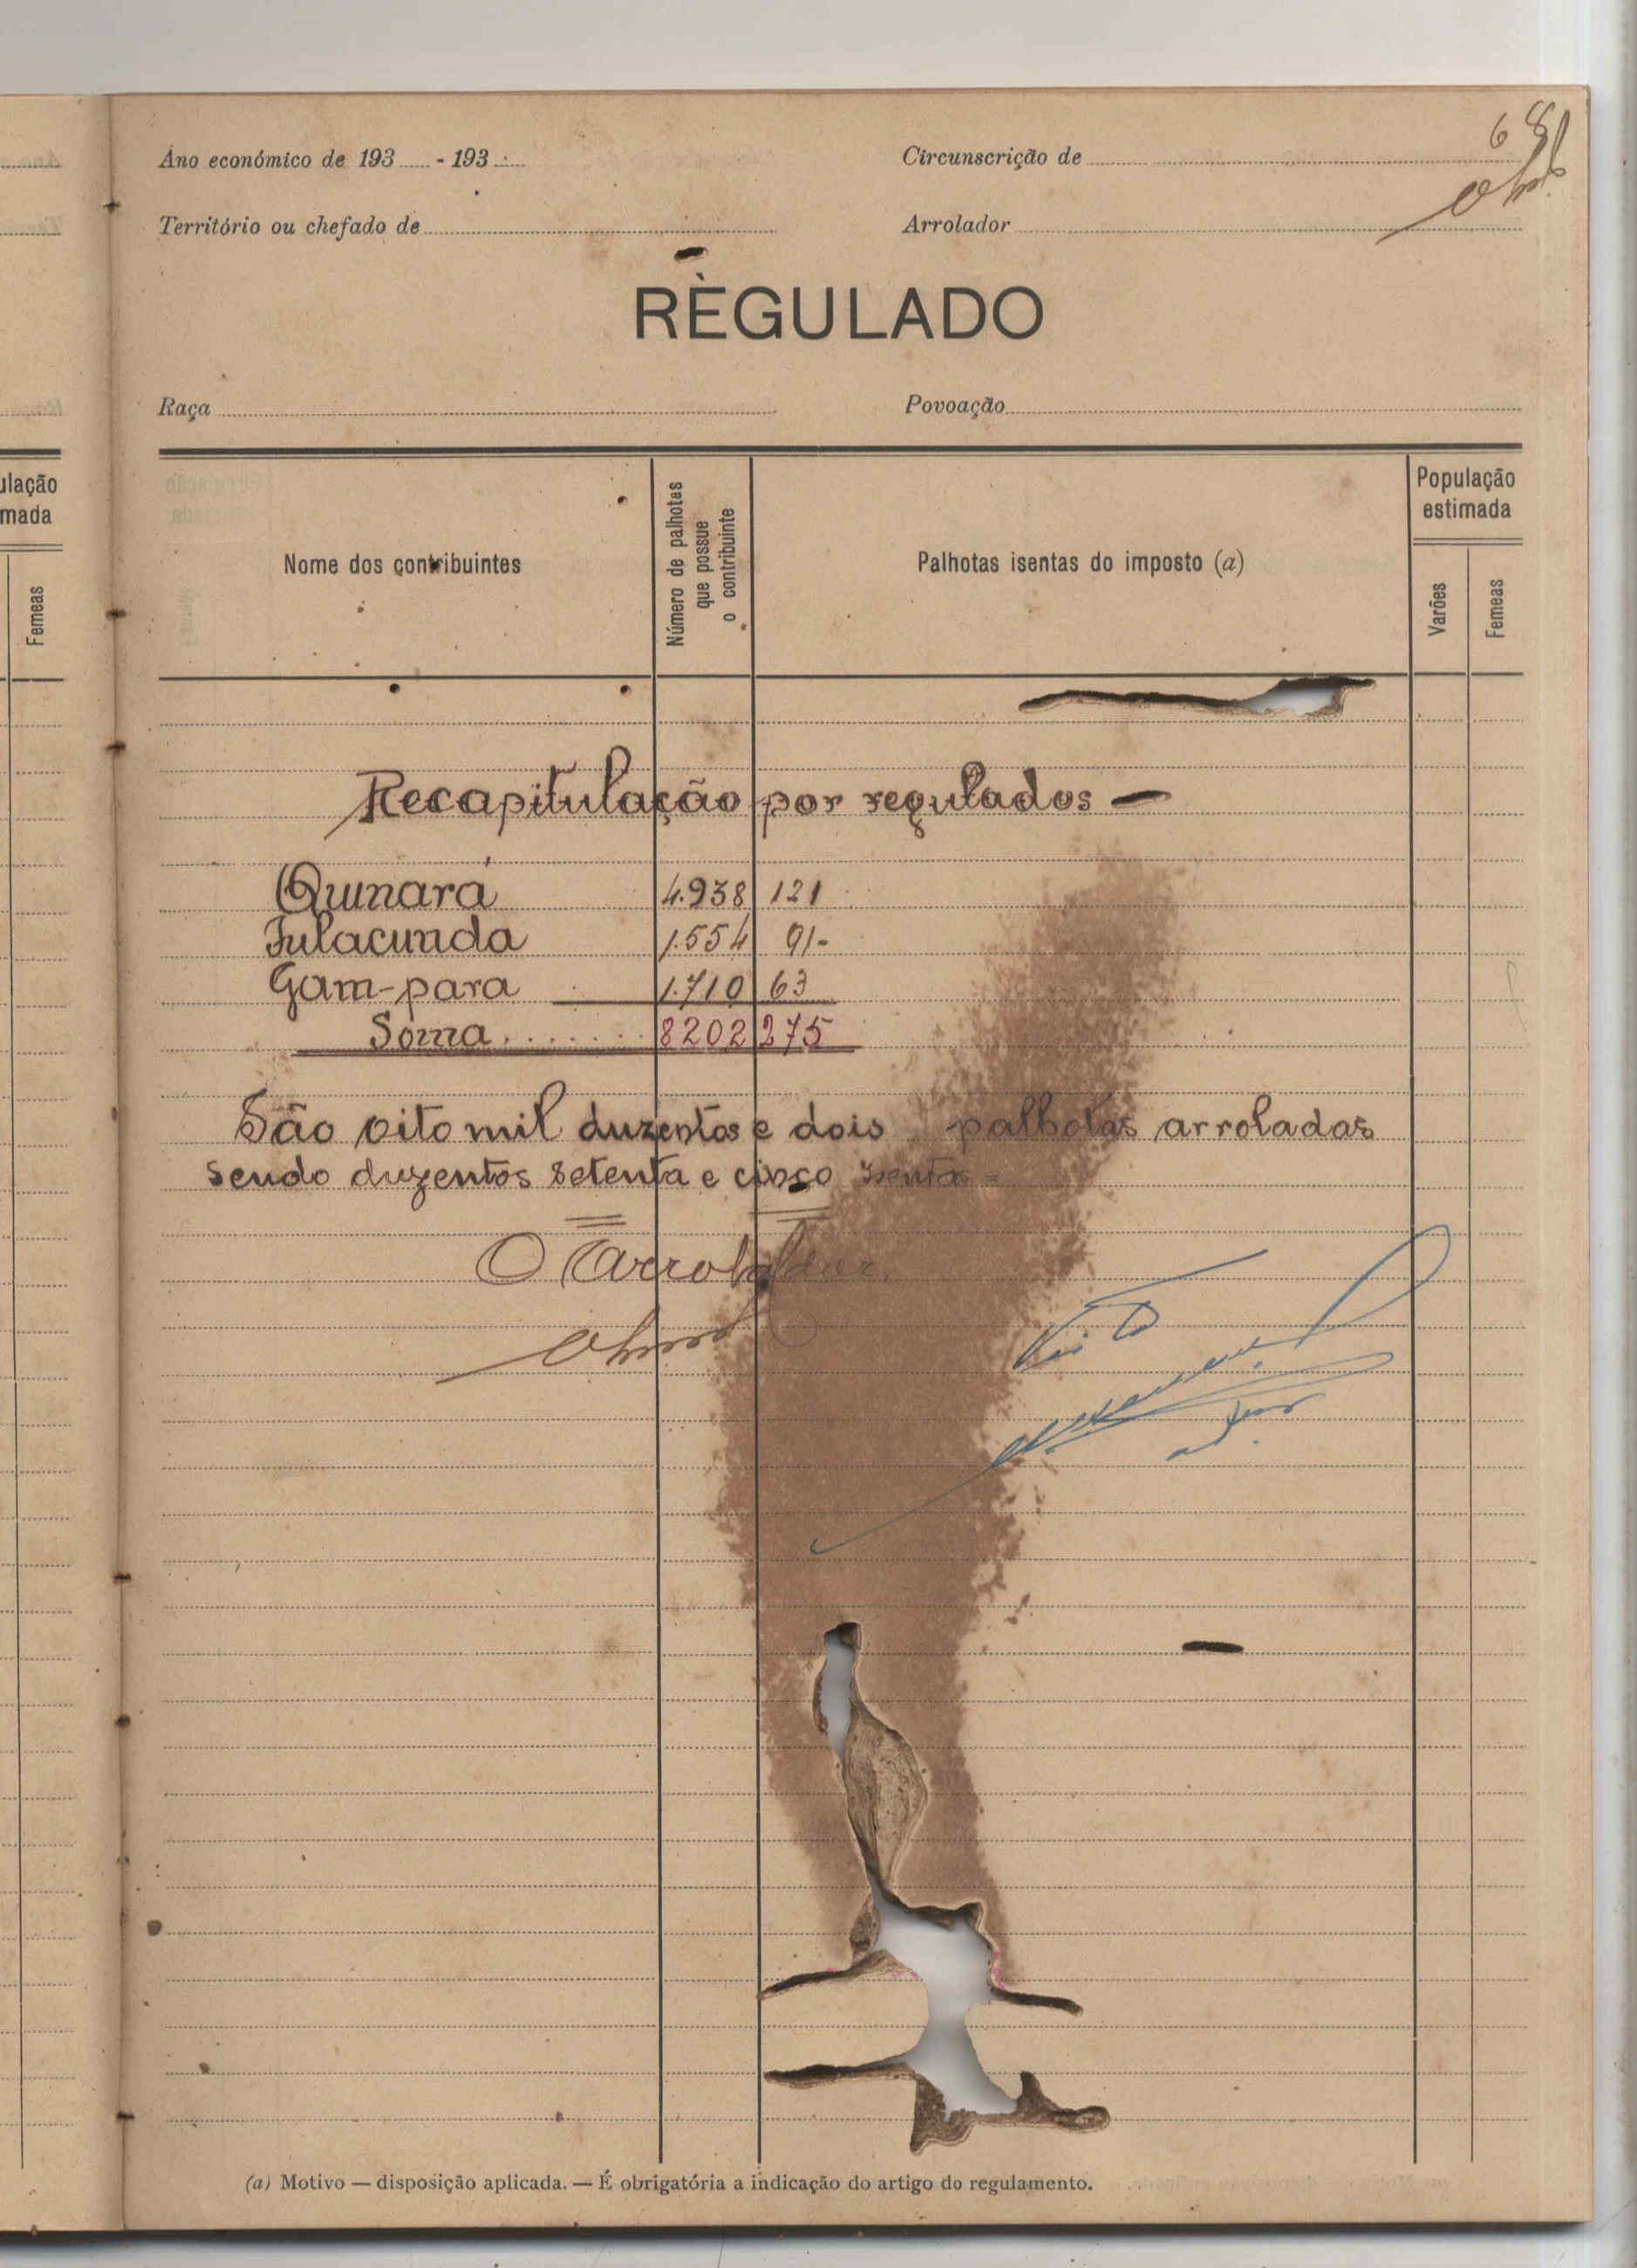 68
Ano económico de 193 - 193
Circunscrição de
Território ou chefado de
Arrolador
RÈGULADO
Raça
Povoação
ulação
mada
Femeas
Nome dos contribuintes
Número de palhotas
que possue
o contribuinte
Palhotas isentas do imposto (a)
População
estimada
Varões
Femeas
Recapitulação por regulados —
Quinará 4.938 121
Fulacunda 1.554 91-
Gam-para 1.710 63
Soma....... 8202 275
São oito mil duzentos e dois palhotas arroladas
sendo duzentos setenta e cinco isentas =
O Arrolador
Visto
(a) Motivo — disposição aplicada. — É obrigatória a indicação do artigo do regulamento.